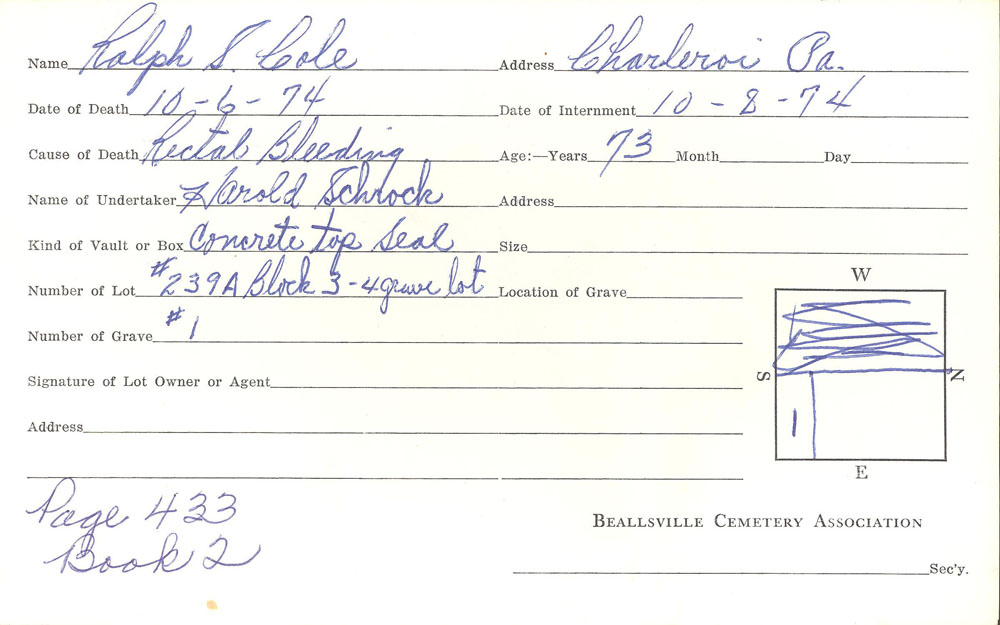 Name Ralph S. Cole Address Charleroi Pa.
Date of Death 10-6-74 Date of Internment 10-8-74
Cause of Death Rectal Bleeding Age:—Years 73 Month Day
Name of Undertaker Harold Schrock Address
Kind of Vault or Box Concrete top Seal Size
Number of Lot #239A Block 3-4 grave lot Location of Grave
W
Number of Grave #1
S N
Signature of Lot Owner or Agent
1
Address
E
Page 433
Beallsville Cemetery Association
Book 2
Sec'y.